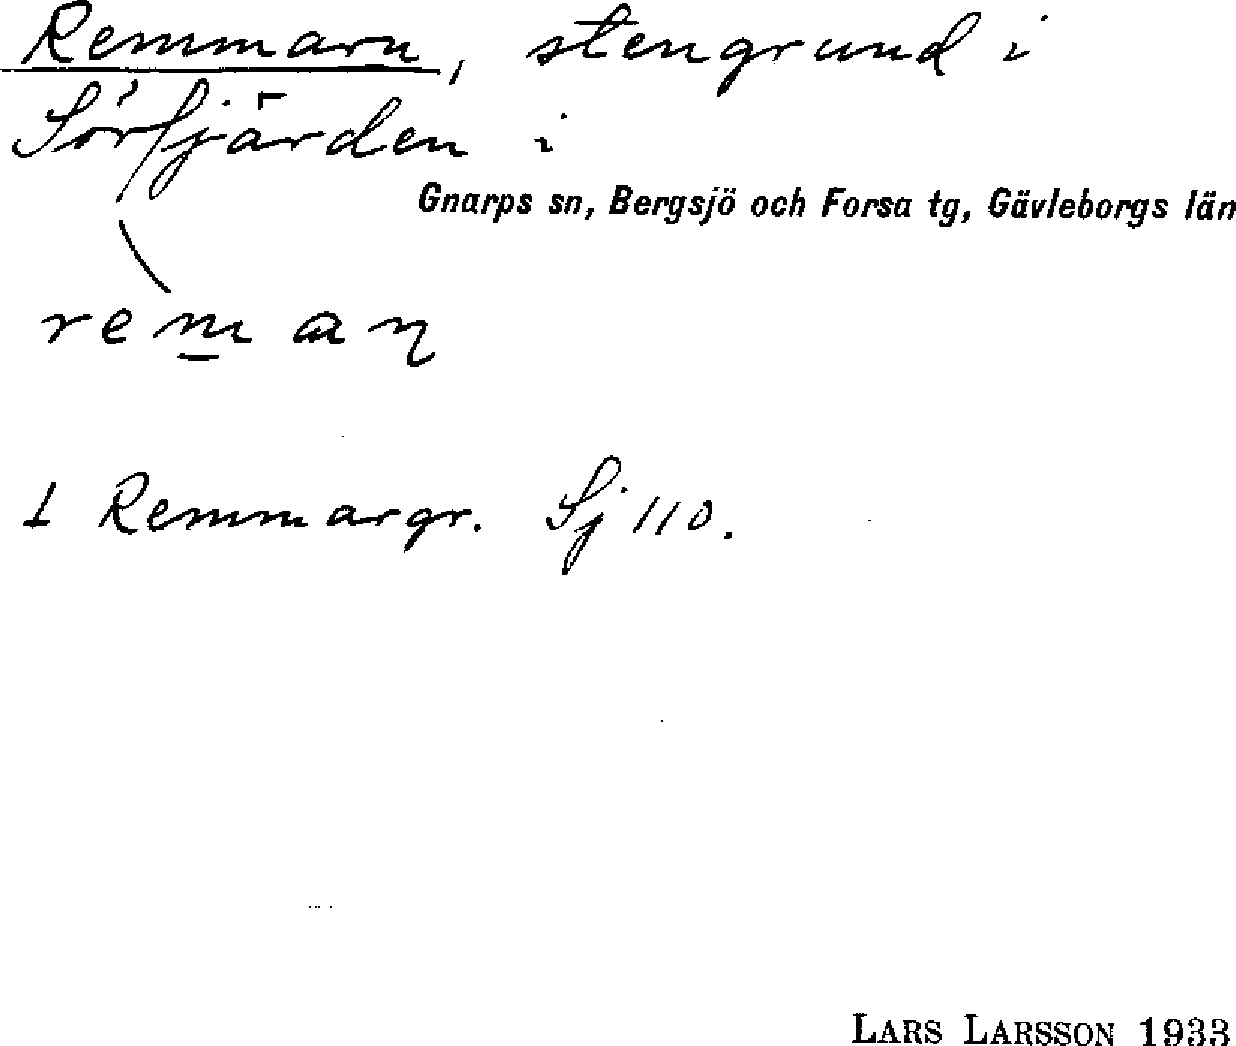 Remmarn, stengrund i
Sörfjärden i
Gnarps sn, Bergsjö och Forsa tg, Gävleborgs län
rem̲aη
⊥ Remmargr. Sj 110.
LARS LARSSON 1933